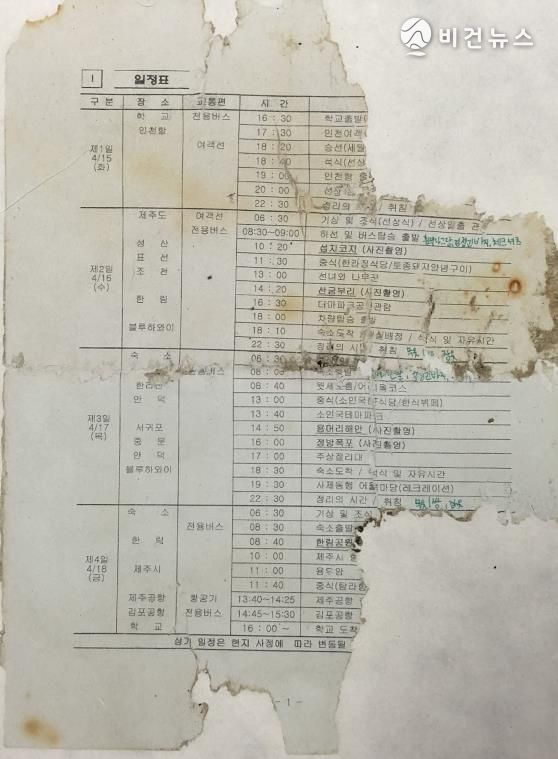 비건뉴스
I 일정표
구 분 장 소 교통편 시 간
학 교 전용버스 16 : 30 학교출발
인천항 17 : 30 인천여객
제1일 4/15 (화) 여객선 18 : 20 승선(세월
18 : 40 석식(선상
19 : 00 인천항 출
20 : 00 선상
22 : 30 정리의 / 취침
제주도 여객선 06 : 30 기상 및 조식(선상식) / 선상일출 관
전용버스 08:30~09:00 하선 및 버스탑승 출발
성 산 10 : 20 섭지코지 (사진촬영)
제2일 4/16 (수) 표 선 11 : 30 중식(한라정식당/토종돼지양념구이)
조 천 13 : 00 선녀와 나무꾼
14 : 20 산굼부리 (사진촬영)
한 림 16 : 30 더마파크공연관람
18 : 00 차량탑승 출발
블루하와이 18 : 10 숙소도착 / 실배정 / 석식 및 자유시간
22 : 30 정리의 시간 / 취침
숙 소 06 : 30
08 : 00 숙소출발
한라산 08 : 40 윗세오름/어리목코스
제3일 4/17 (목) 안 덕 13 : 00 중식(소인국한식당/한식뷔페)
13 : 40 소인국테마파크
서귀포 14 : 50 용머리해안 (사진촬영)
중 문 16 : 00 정방폭포 (사진촬영)
안 덕 17 : 00 주상절리대
블루하와이 18 : 30 숙소도착 / 석식 및 자유시간
19 : 30 사제동행 어울마당(레크레이션)
22 : 30 정리의 시간 / 취침
숙 소 06 : 30 기상 및 조식
전용버스 08 : 30 숙소출발
한 림 08 : 40 한림공원
제4일 4/18 (금) 제주시 10 : 00 제주시
11 : 00 용두암
11 : 40 중식(탐라
제주공항 항공기 13:40~14:25 제주공항
김포공항 전용버스 14:45~15:30 김포공항
학 교 16 : 00 ~ 학교 도착
상기 일정은 현지 사정에 따라 변동될
- 1 -